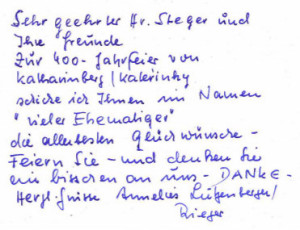 Sehr geehrter Hr. Steger und
Ihre Freunde
Zur 400-Jahrfeier von
Katharinberg/Kateřinky
schicke ich Ihnen im Namen
"vieler Ehemaliger"
die allerbesten Glückwünsche -
Feiern Sie - und denken Sie
ein bisschen an uns - DANKE -
Herzl. Grüsse Annelies
Rieger